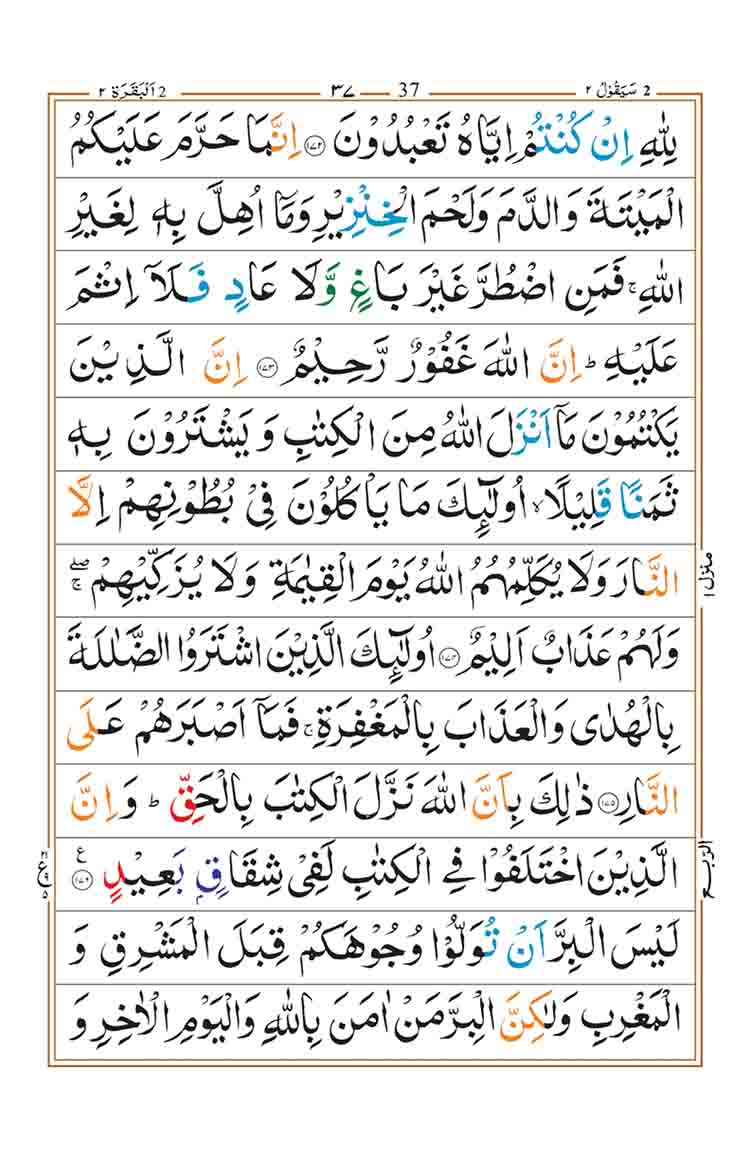 2 سَيَقُوْلُ ٢ 37 ٣٧ 2 اَلْبَقَرَة ٢
لِلّٰهِ اِنْ كُنْتُمْ اِيَّاهُ تَعْبُدُوْنَ ١٧٢ اِنَّمَا حَرَّمَ عَلَيْكُمُ
الْمَيْتَةَ وَالدَّمَ وَلَحْمَ الْخِنْزِيْرِ وَمَاۤ اُهِلَّ بِهٖ لِغَيْرِ
اللّٰهِ ۚ فَمَنِ اضْطُرَّ غَيْرَ بَاغٍ وَّلَا عَادٍ فَلَاۤ اِثْمَ
عَلَيْهِ ؕ اِنَّ اللّٰهَ غَفُوْرٌ رَّحِيْمٌ ١٧٣ اِنَّ الَّذِيْنَ
يَكْتُمُوْنَ مَاۤ اَنْزَلَ اللّٰهُ مِنَ الْكِتٰبِ وَ يَشْتَرُوْنَ بِهٖ
ثَمَنًا قَلِيْلًا ۙ اُولٰٓئِكَ مَا يَاْكُلُوْنَ فِيْ بُطُوْنِهِمْ اِلَّا
النَّارَ وَلَا يُكَلِّمُهُمُ اللّٰهُ يَوْمَ الْقِيٰمَةِ وَلَا يُزَكِّيْهِمْ ۖۚ
وَلَهُمْ عَذَابٌ اَلِيْمٌ ١٧٤ اُولٰٓئِكَ الَّذِيْنَ اشْتَرَوُا الضَّلٰلَةَ
بِالْهُدٰى وَالْعَذَابَ بِالْمَغْفِرَةِ ۚ فَمَاۤ اَصْبَرَهُمْ عَلَى
النَّارِ ١٧٥ ذٰلِكَ بِاَنَّ اللّٰهَ نَزَّلَ الْكِتٰبَ بِالْحَقِّ ؕ وَاِنَّ
الَّذِيْنَ اخْتَلَفُوْا فِي الْكِتٰبِ لَفِيْ شِقَاقٍۭ بَعِيْدٍ ١٧٦ ع
لَيْسَ الْبِرَّ اَنْ تُوَلُّوْا وُجُوْهَكُمْ قِبَلَ الْمَشْرِقِ وَ
الْمَغْرِبِ وَلٰكِنَّ الْبِرَّ مَنْ اٰمَنَ بِاللّٰهِ وَالْيَوْمِ الْاٰخِرِ وَ
منزل ١
الربع